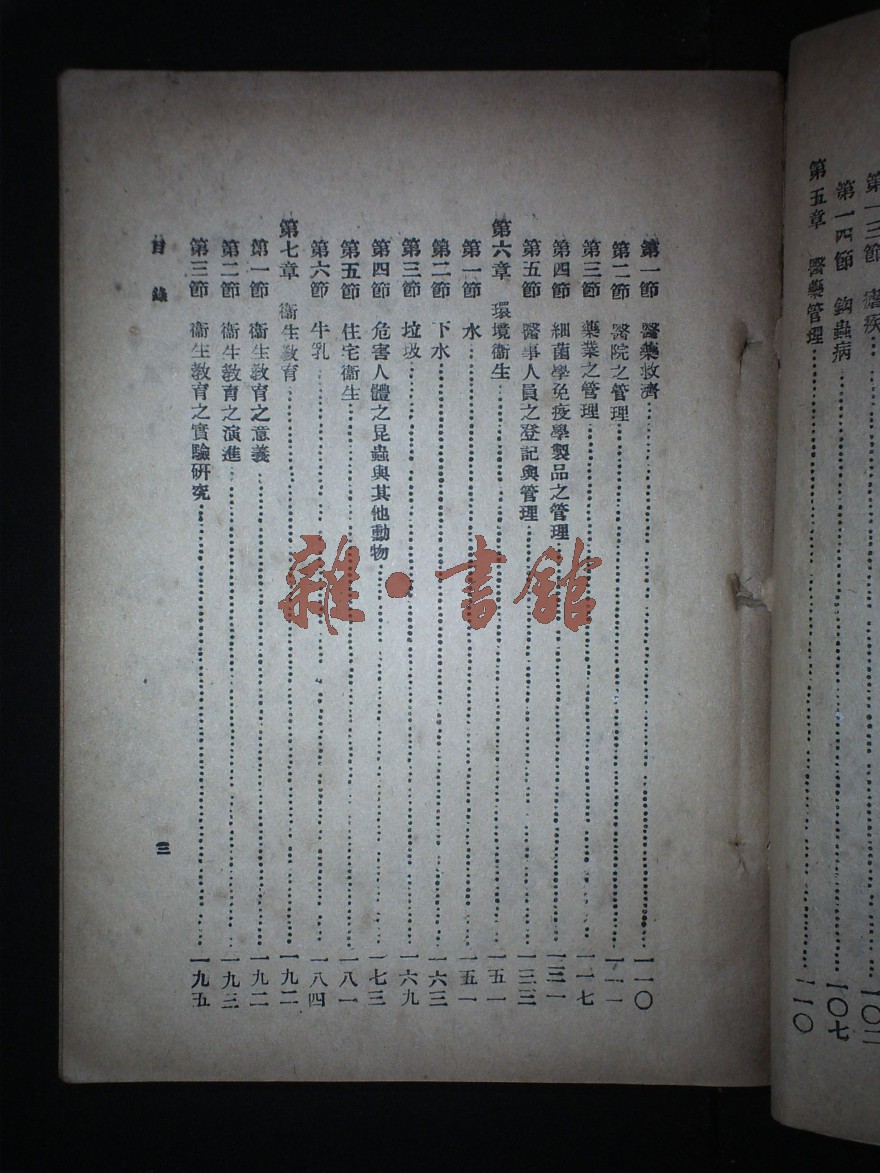 第一三節 瘧疾……一〇二
第一四節 鈎蟲病……一〇七
第五章 醫藥管理……一一〇
第一節 醫藥救濟……一一〇
第二節 醫院之管理……一一一
第三節 藥業之管理……一一七
第四節 細菌學免疫學製品之管理……一三一
第五節 醫事人員之登記與管理……一三三
第六章 環境衞生……一五一
第一節 水……一五一
第二節 下水……一六三
第三節 垃圾……一六九
第四節 危害人體之昆蟲與其他動物……一七三
第五節 住宅衞生……一八一
第六節 牛乳……一八四
第七章 衞生教育……一九二
第一節 衞生教育之意義……一九二
第二節 衞生教育之演進……一九三
第三節 衞生教育之實驗研究……一九五
目錄
三
雜·書館